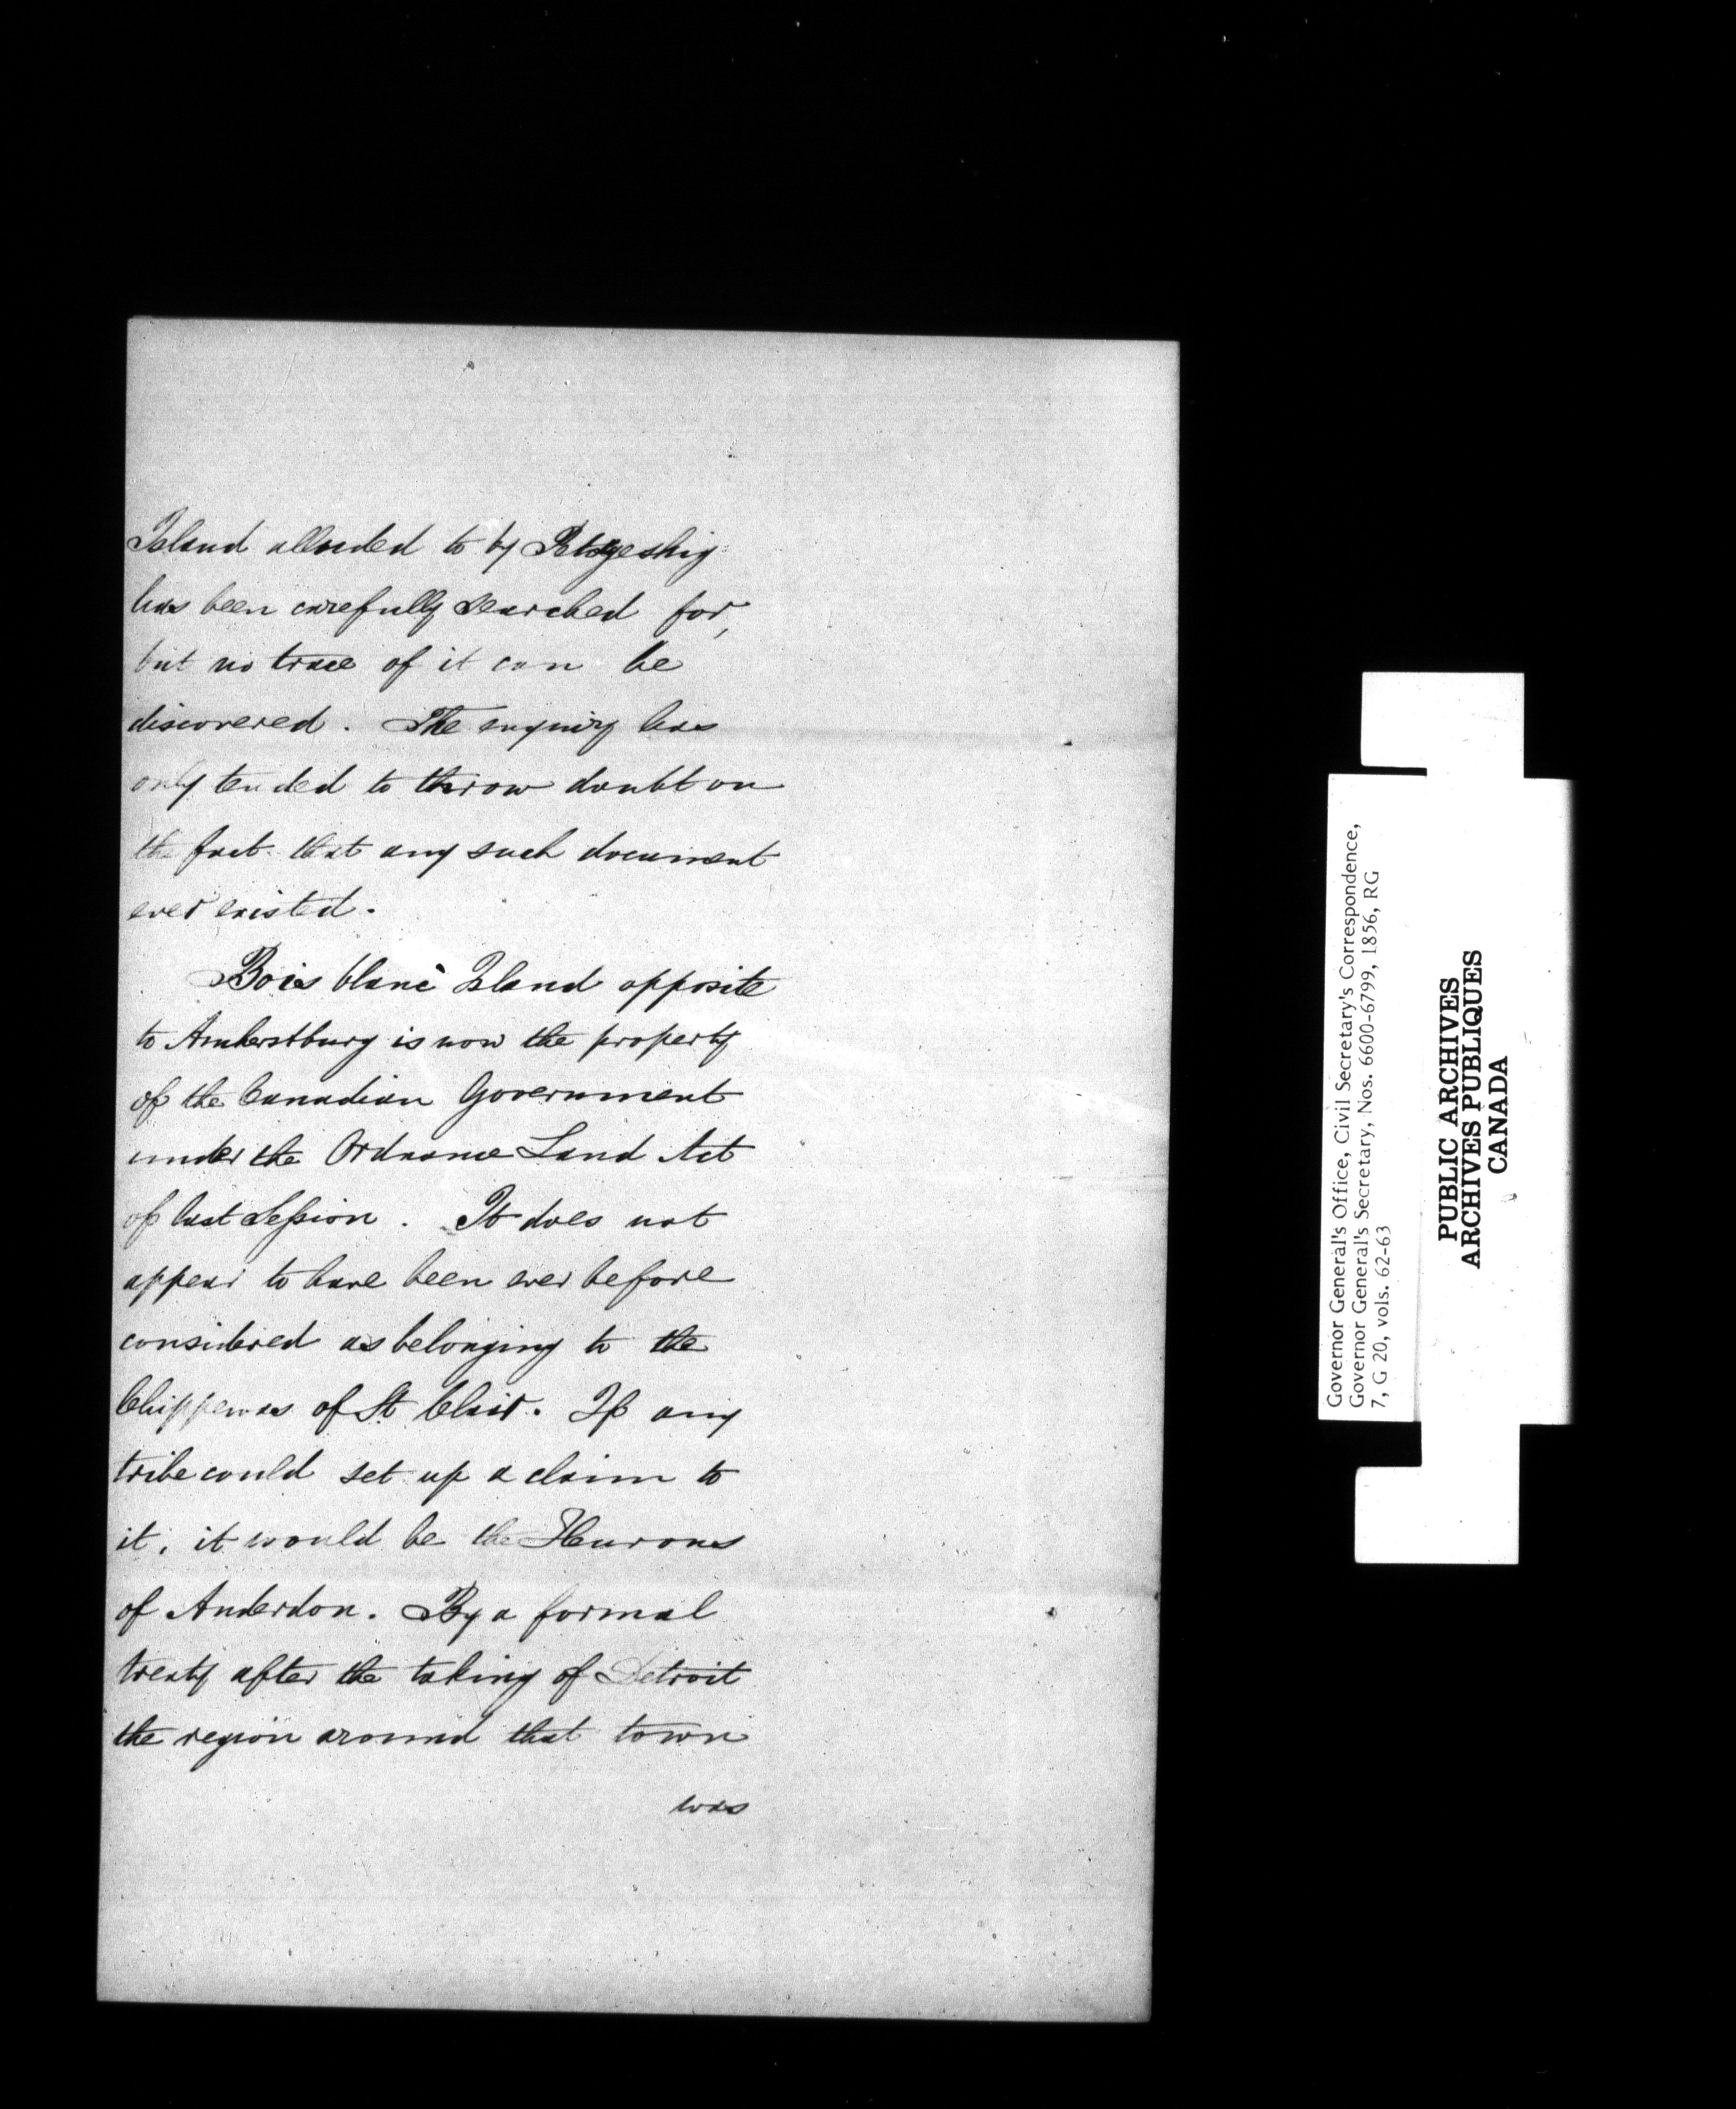 Island alluded to by Petwgeshig
has been carefully searched for,
but no trace of it can be
discovered. The enquiry has
only tended to throw doubt on
the fact that any such document
ever existed.
Bois blanc Island opposite
to Amherstburg is now the property
of the Canadian Government
under the Ordnance Land Act
of last Session. It does not
appear to have been ever before
considered as belonging to the
Chippewas of St Clair. If any
tribe could set up a claim to
it, it would be the Hurons
of Anderdon. By a formal
treaty after the taking of Detroit
the region around that town
was
Governor General's Office, Civil Secretary's Correspondence,
Governor General's Secretary, Nos. 6600-6799, 1856, RG
7, G 20, vols. 62-63
PUBLIC ARCHIVES
ARCHIVES PUBLIQUES
CANADA